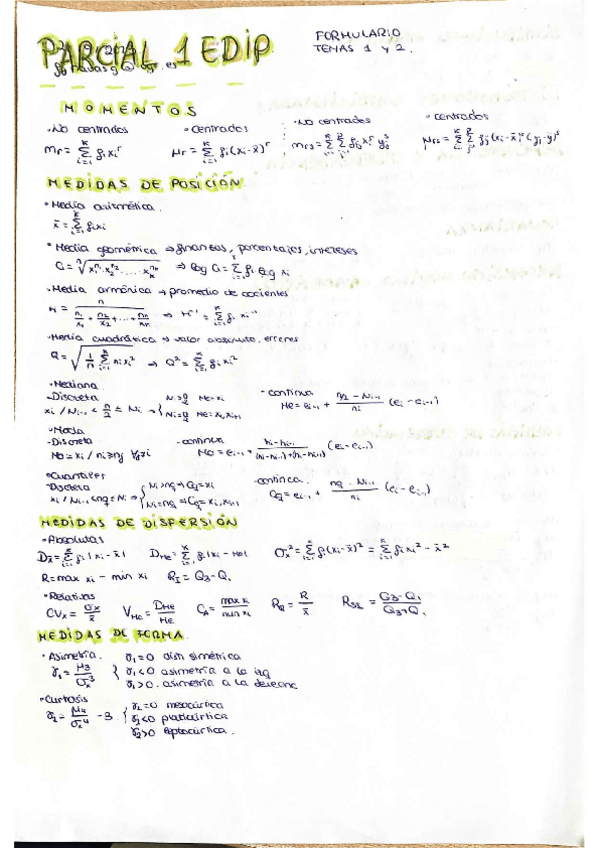 PARCIAL 1 EDIP
FORMULARIO
TEMAS 1 y 2.
MOMENTOS
·No centrados
·centrados
·No centrados
·centrados
m_r = Σ_{i=1}^{k} f_i x_i^r
μ_r = Σ_{i=1}^{k} f_i (x_i - x̄)^r
m_{rs} = Σ_{i=1}^{k} Σ_{j=1}^{p} f_{ij} x_i^r y_j^s
μ_{rs} = Σ_{i=1}^{k} Σ_{j=1}^{p} f_{ij} (x_i - x̄)^r (y_j - ȳ)^s
MEDIDAS DE POSICIÓN
·Media aritmética.
x̄ = Σ_{i=1}^{k} f_i x_i
·Media geométrica → finanzas, porcentajes, intereses
G = ⁿ√(x_1^{n_1} · x_2^{n_2} · ... · x_k^{n_k}) ⇒ log G = Σ f_i log x_i
·Media armónica → promedio de cocientes
H = n / (n_1/x_1 + n_2/x_2 + ... + n_n/x_n) ⇒ H^{-1} = Σ_{i=1}^{k} f_i x_i^{-1}
·Media cuadrática → valor absoluto, errores
Q = √(1/n Σ_{i=1}^{k} n_i x_i^2) ⇒ Q^2 = Σ_{i=1}^{k} f_i x_i^2
·Mediana.
-Discreta
x_i / N_{i-1} < n/2 ≤ N_i ⇒ { N_i > n/2 Me = x_i
N_i = n/2 Me = x_i, x_{i+1}
-continua
Me = e_{i-1} + (n/2 - N_{i-1})/n_i (e_i - e_{i-1})
·Moda
-Discreta
Mo = x_i / n_i ≥ n_j ∀j≠i
-continua
Mo = e_{i-1} + (h_i - h_{i-1})/((h_i - h_{i-1}) + (h_i - h_{i+1})) (e_i - e_{i-1})
·Cuantiles
-Discreta
x_i / N_{i-1} < nq ≤ N_i ⇒ { N_i > nq ⇒ C_q = x_i
N_i = nq ⇒ C_q = x_i, x_{i+1}
-continua.
C_q = e_{i-1} + (nq - N_{i-1})/n_i (e_i - e_{i-1})
MEDIDAS DE DISPERSIÓN
·Absolutas
D_x̄ = Σ_{i=1}^{k} f_i |x_i - x̄|
D_{Me} = Σ_{i=1}^{k} f_i |x_i - Me|
σ_x^2 = Σ_{i=1}^{k} f_i (x_i - x̄)^2 = Σ_{i=1}^{k} f_i x_i^2 - x̄^2
R = max x_i - min x_i
R_I = Q_3 - Q_1
·Relativas
CV_x = σ_x/x̄
V_{Me} = D_{Me}/Me
C_A = max x_i/min x_i
R_R = R/x̄
R_{SI} = (Q_3 - Q_1)/(Q_3 + Q_1)
MEDIDAS DE FORMA
·Asimetría.
γ_1 = μ_3/σ_x^3
γ_1 = 0 dist simétrica
γ_1 < 0 asimetría a la izq
γ_1 > 0. asimetría a la derecha
·Curtosis
γ_2 = μ_4/σ_x^4 - 3
γ_2 = 0 mesocúrtica
γ_2 < 0 platicúrtica
γ_2 > 0 leptocúrtica.